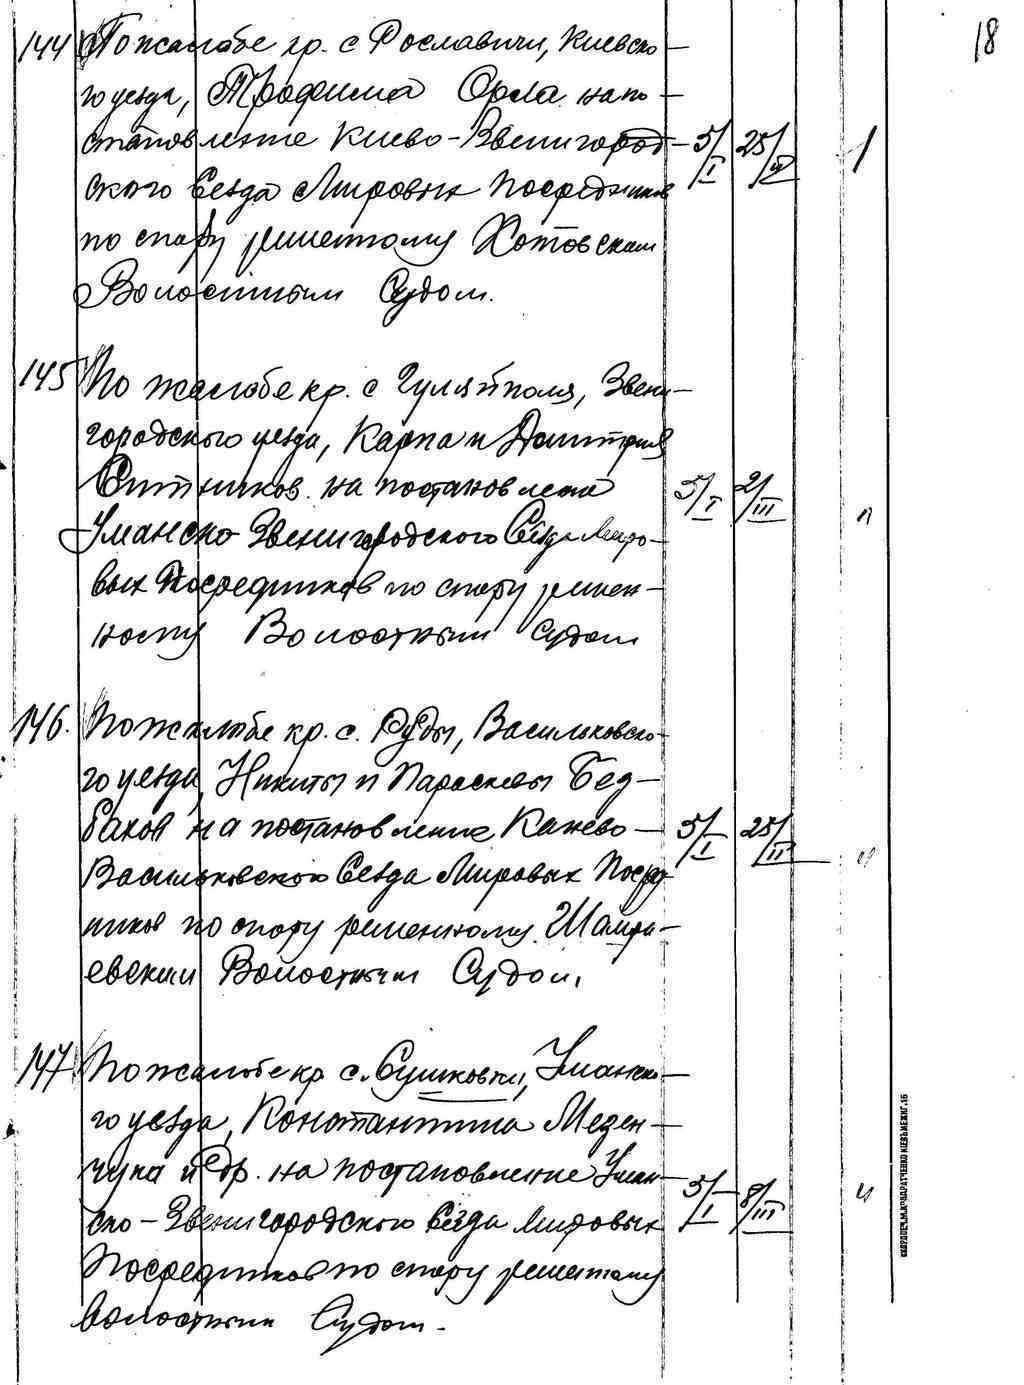 18
144 По жалобе кр. с Рославичи, Киевско-
го уезда, Трофима Орла на по-
становление Киево-Звенигород- 5/I 25/II 1
ского Сезда Мировых Посредников
по спору решенному Хотовским
Волостным Судом.
145 По жалобе кр. с Гуляйполя, Звени-
городского уезда, Карпа и Дмитрия
Ситников на постановление 5/I 2/III
Уманско Звенигородского Сезда Миро-
вых Посредников по спору решен-
ному Волостным Судом
146. По жалобе кр. с. Руды, Васильковско-
го уезда, Никиты и Параскевы Бед-
баков на постановление Канево- 5/I 25/II
Васильковского Сезда Мировых Посред-
ников по спору решенному Шамра-
евским Волостным Судом.
147 По жалобе кр с. Сушковки, Уманско-
го уезда, Константина Мезен-
чука и др. на постановление Уман- 5/I 8/III
ско-Звенигородского Сезда Мировых
Посредников по спору решенному
Волостным Судом.